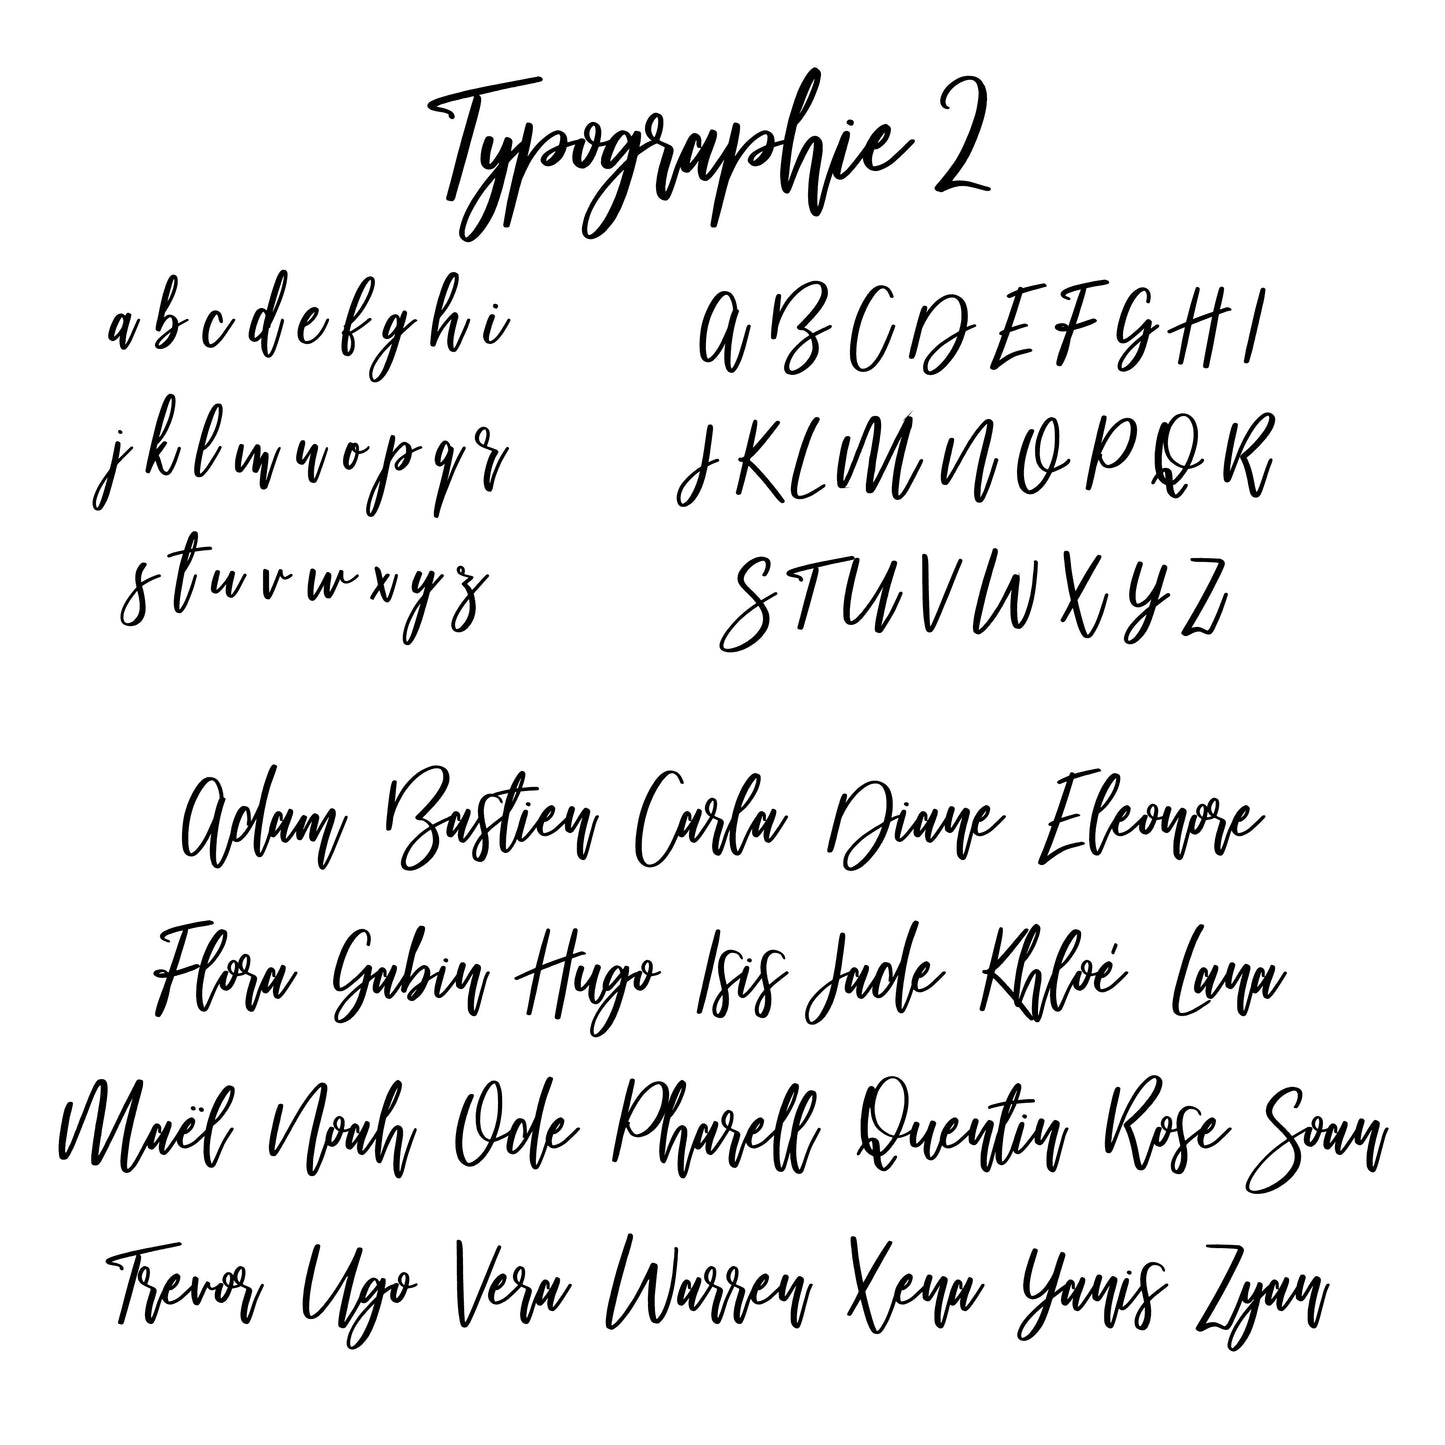 Typographie 2
a b c d e f g h i
A B C D E F G H I
j k l m n o p q r
J K L M N O P Q R
s t u v w x y z
S T U V W X Y Z
Adam Bastien Carla Diane Eleonore
Flora Gabin Hugo Isis Jade Khloé Lana
Maël Noah Ode Pharell Quentin Rose Soan
Trevor Ugo Vera Warren Xena Yanis Zyan